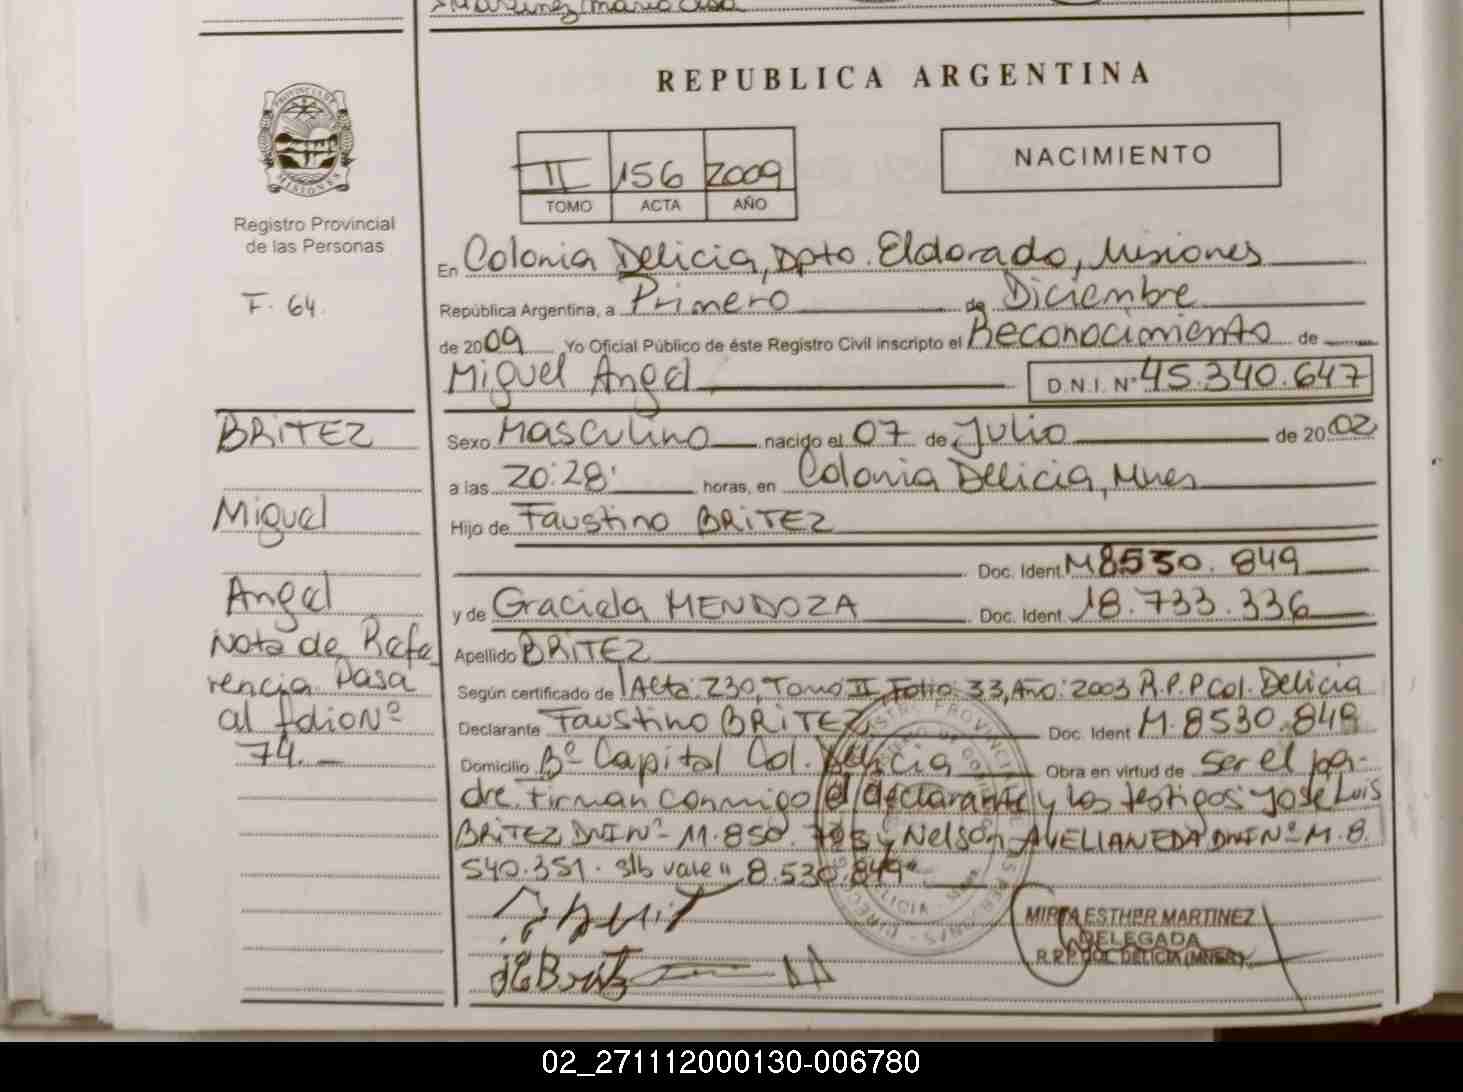 Martinez Maria Elsa
REPUBLICA ARGENTINA
PROVINCIA DE MISIONES
Registro Provincial
de las Personas
F. 64.
II 156 2009
TOMO ACTA AÑO
NACIMIENTO
En Colonia Delicia, Dpto. Eldorado, Misiones
República Argentina, a Primero de Diciembre
de 2009 Yo Oficial Público de éste Registro Civil inscripto el Reconocimiento de
Miguel Angel D.N.I. Nº 45.340.647
BRITEZ
Miguel
Angel
Nota de Refe
rencia Pasa
al folio Nº
74.
Sexo Masculino nacido el 07 de Julio de 2002
a las 20:28' horas, en Colonia Delicia, Mnes
Hijo de Faustino BRITEZ
Doc. Ident. M8530.849
y de Graciela MENDOZA Doc. Ident. 18.733.336
Apellido BRITEZ
Según certificado de Acta: 230, Tomo II, Folio: 33, Año: 2003 R.P.P Col. Delicia
Declarante Faustino BRITEZ Doc. Ident M.8530.849
Domicilio Bº Capital Col. Delicia Obra en virtud de ser el pa-
dre. Firman conmigo el declarante y los testigos José Luis
BRITEZ DNI Nº 11.850. y Nelson AVELLANEDA DNI Nº M.8.
540.351. s/b vale " 8.530.849"
MIRTA ESTHER MARTINEZ
DELEGADA
R.P.P COL. DELICIA (MNES)
02_271112000130-006780